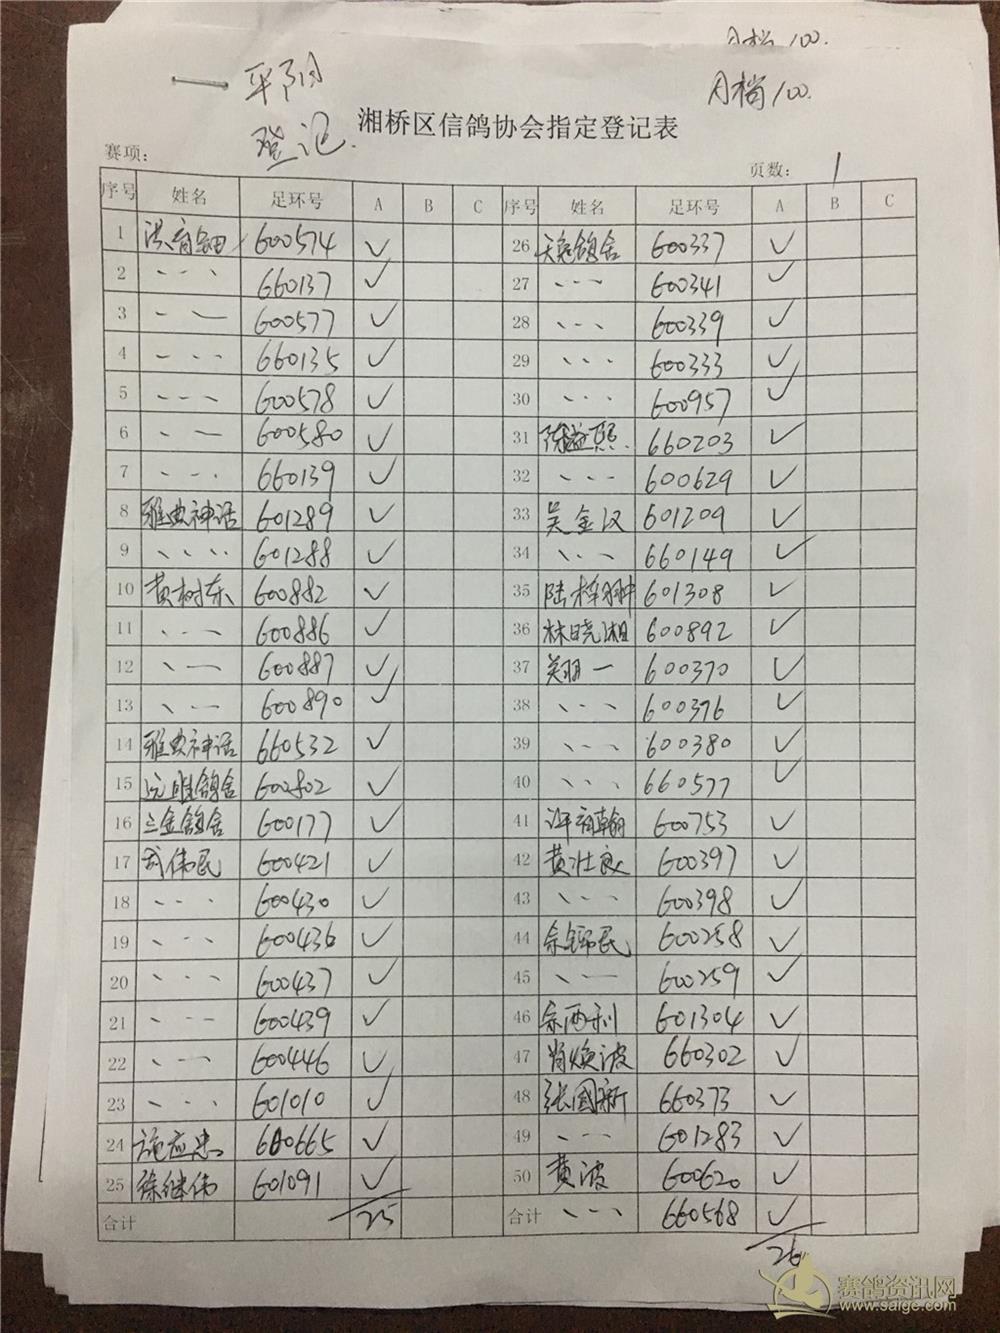 月档100.
月档100.
一 平阴
登记.
湘桥区信鸽协会指定登记表
赛项: 页数: 1
序号 姓名 足环号 A B C 序号 姓名 足环号 A B C
1 洪 600574 ✓ 26 鸽舍 600337 ✓
2 、、、 660137 ✓ 27 、、、 600341 ✓
3 、、 600577 ✓ 28 、、、 600339 ✓
4 、、、 660135 ✓ 29 、、、 600333 ✓
5 、、、 600578 ✓ 30 、、、 600957 ✓
6 、、 600580 ✓ 31 陈益熙. 660203 ✓
7 、、、 660139 ✓ 32 、、、 600629 ✓
8 雅典神话 601289 ✓ 33 吴金汉 601209 ✓
9 、、、、 601288 ✓ 34 、、、 660149 ✓
10 黄树东 600882 ✓ 35 陆梓翀 601308 ✓
11 、、、 600886 ✓ 36 林晓湘 600892 ✓
12 、、 600887 ✓ 37 翔一 600370 ✓
13 、、 600890 ✓ 38 、、、 600376 ✓
14 雅典神话 660532 ✓ 39 、、、 600380 ✓
15 远胜鸽舍 600802 ✓ 40 、、、 660577 ✓
16 三金鸽舍 600177 ✓ 41 许翰 600753 ✓
17 伟民 600421 ✓ 42 黄壮良 600397 ✓
18 、、、 600430 ✓ 43 、、 600398 ✓
19 、、、 600436 ✓ 44 余锦民 600258 ✓
20 、、、 600437 ✓ 45 、、 600259 ✓
21 、、、 600439 ✓ 46 余两利 601304 ✓
22 、、 600446 ✓ 47 肖焕波 660302 ✓
23 、、、 601010 ✓ 48 张国新 660373 ✓
24 施应忠 600665 ✓ 49 、、、 601283 ✓
25 徐继伟 601091 ✓ 50 黄波 600620 ✓
合计 25 合计 、、、 660568 ✓
26
赛鸽资讯网
www.saige.com